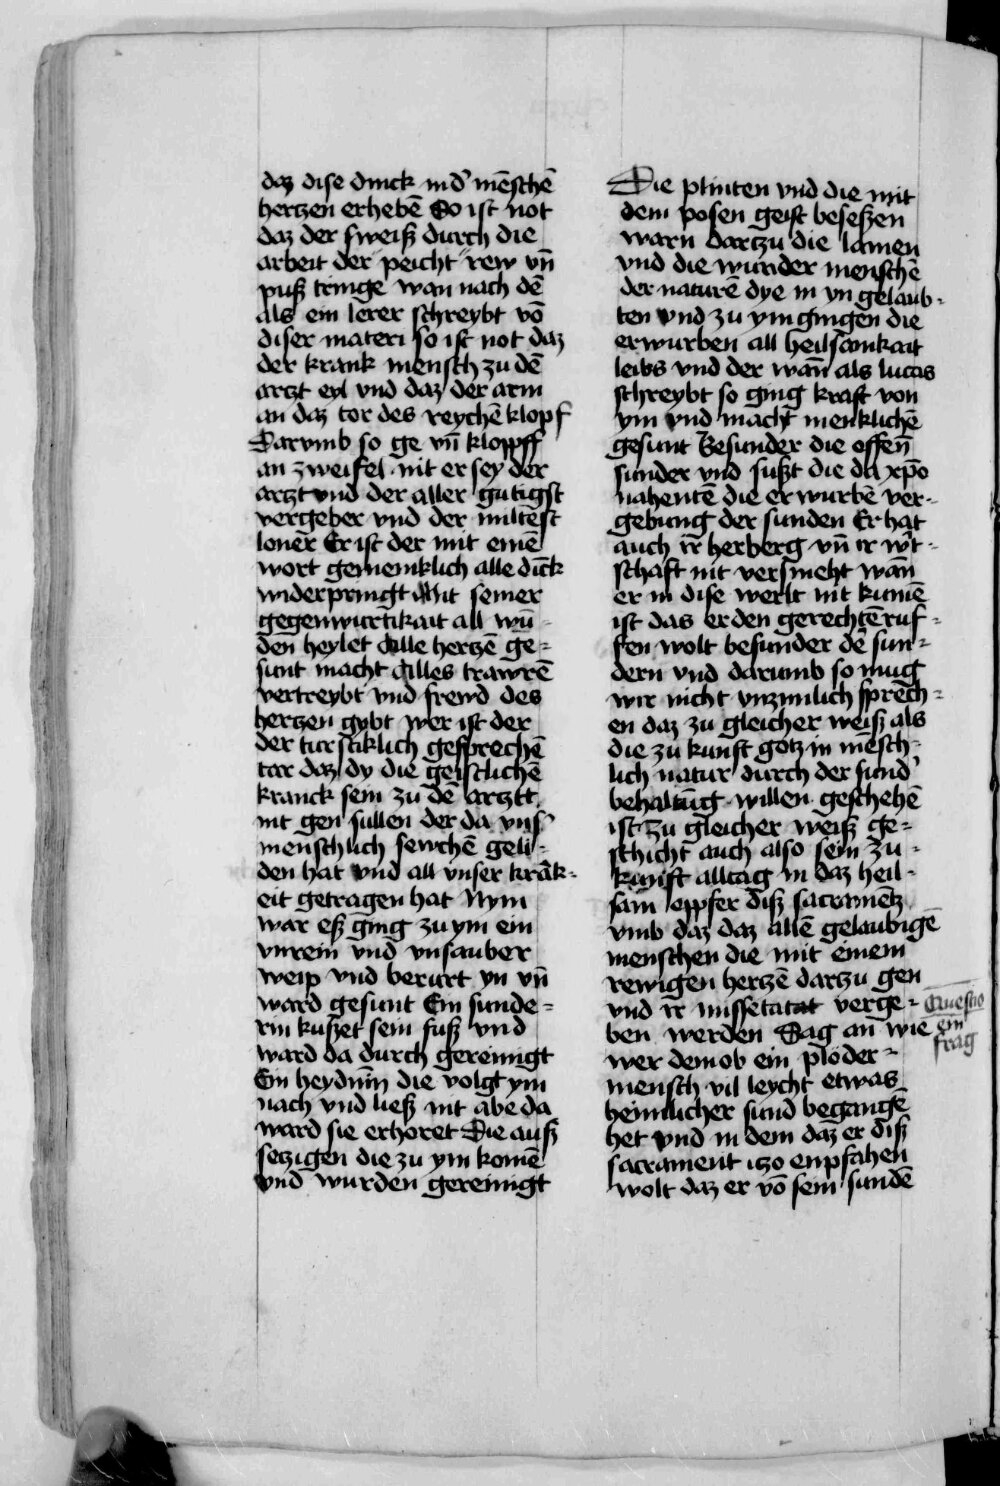 daz dise dinck in d' mēschē
hertzen erhebē So ist not
daz der sweiß durch die
arbeit der peicht rew vn̄
puß tringe wan nach dē
als ein lerer schreybt vō
diser materi so ist not daz
der krank mensch zu dē
artzt eyl vnd daz der arm
an daz tor des reychē klopf
Darvmb so ge vn̄ klopff
an zweifel nit er sey der
artzt vnd der aller gutigst
vergeber vnd der miltēst
lonēr Er ist der mit einē
wort gemeinklich alle dīck
widerpringt Mit seiner
gegenwurtikait all wū-
den heylet Alle hertzē ge=
sunt macht Alles trawrē
vertreybt vnd frewd des
hertzen gybt wer ist der
der turstiklich gesprechē
tar daz dy die geistlichē
kranck sein zu dē artztt
nit gen sullen der da vns'
menschlich sewchē geli-
den hat vnd all vnser krāk-
eit getragen hat Nym
war eß ging zu ym ein
vnrein vnd vnsauber
weip vnd berurt yn vn̄
ward gesunt Ein sunde=
rin kußet sein fuß vnd
ward da durch gereinigt
Ein heydnīn die volgt ym
nach vnd ließ nit abe da
ward sie erhoret Die auß
setzigen die zu ym komē
vnd wurden gereinigt
Die plinten vnd die mit
dem posen geist beseßen
warn dartzu die lamen
vnd die wunder menschē
der naturē dye in yn gelaub-
ten vnd zu ym gingen die
erwurben all heilsamkait
leibs vnd der wan̄ als lucas
schreybt so ging kraft von
ym vnd macht menklichē
gesunt Besunder die offen̄
sunder vnd sußt die da xp̄o
nahentē die erwurbē ver-
gebung der sunden Er hat
auch ir̄ herberg vn̄ ir w't-
schaft nit versmeht wan̄
er in dise werlt nit kumē
ist das er den gerechtē ruf-
fen wolt besunder dē sun-
dern vnd darumb so mug
wir nicht vnzimlich sprech=
en daz zu gleicher weiß als
die zu kunft gotz in mēsch-
lich natur durch der sund'
behaltūg willen geschehē
ist zu gleicher weiß ge=
schicht auch also sein zu-
kunft alltag in daz heil-
sam oppfer diß sacramētz
vmb daz daz allē gelaubigē
menschen die mit einem
rewigen hertzē dartzu gen
vnd ir̄ missetatat verge-
ben werden Sag an wie
wer dem ob ein ploder-
mensch vil leycht etwas
heimlicher sund begangē
het vnd in dem daz er diß
sacrament itzo enpfahen
wolt daz er vō sein sundē
Questio
ein
frag